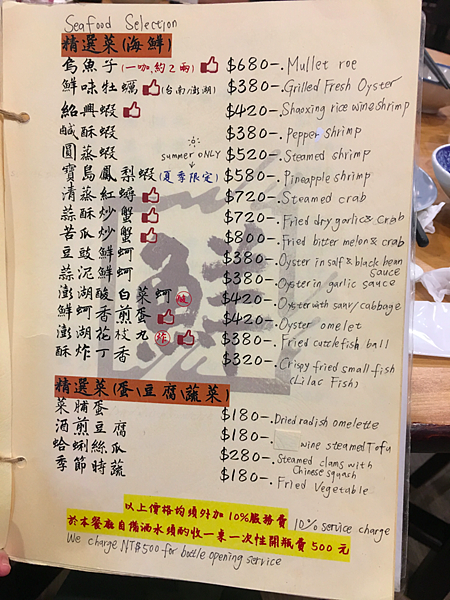 Seafood Selection
精選菜(海鮮)
烏魚子(一咖,約2兩) $680-. Mullet roe
鮮味牡蠣(台南/澎湖) $380-. Grilled Fresh Oyster
紹興蝦 $420-. Shaoxing rice wine shrimp
鹹酥蝦 $380-. Pepper shrimp
圓蒸蝦 $520-. Steamed shrimp
summer ONLY
寶島鳳梨蝦(夏季限定) $580-. Pineapple shrimp
清蒸紅蟳 $720-. Steamed crab
蒜酥炒蟹 $720-. Fried dry garlic & Crab
苦瓜炒蟹 $800-. Fried bitter melon & crab
豆豉鮮蚵 $380-. Oyster in salf & black bean sauce
蒜泥鮮蚵 $380-. Oyster in garlic sauce
澎湖酸白菜蚵 $420-. Oyster with saur/cabbage
鮮蚵香煎蛋 $420-. Oyster omelet
澎湖花枝丸 炸 $380-. Fried cuttlefish ball
酥炸丁香 $320-. Crispy fried small fish
(Lilac Fish)
精選菜(蛋\豆腐\蔬菜)
菜脯蛋 $180-. Dried radish omelette
酒煎豆腐 $180-. wine steamed Tofu
蛤蜊絲瓜 $280-. Steamed clams with Chinese squash
季節時蔬 $180-. Fried Vegetable
以上價格均須外加10%服務費 10% service charge
於本餐廳自備酒水須酌收一桌一次性開瓶費500元
We charge NT$500 for bottle opening service